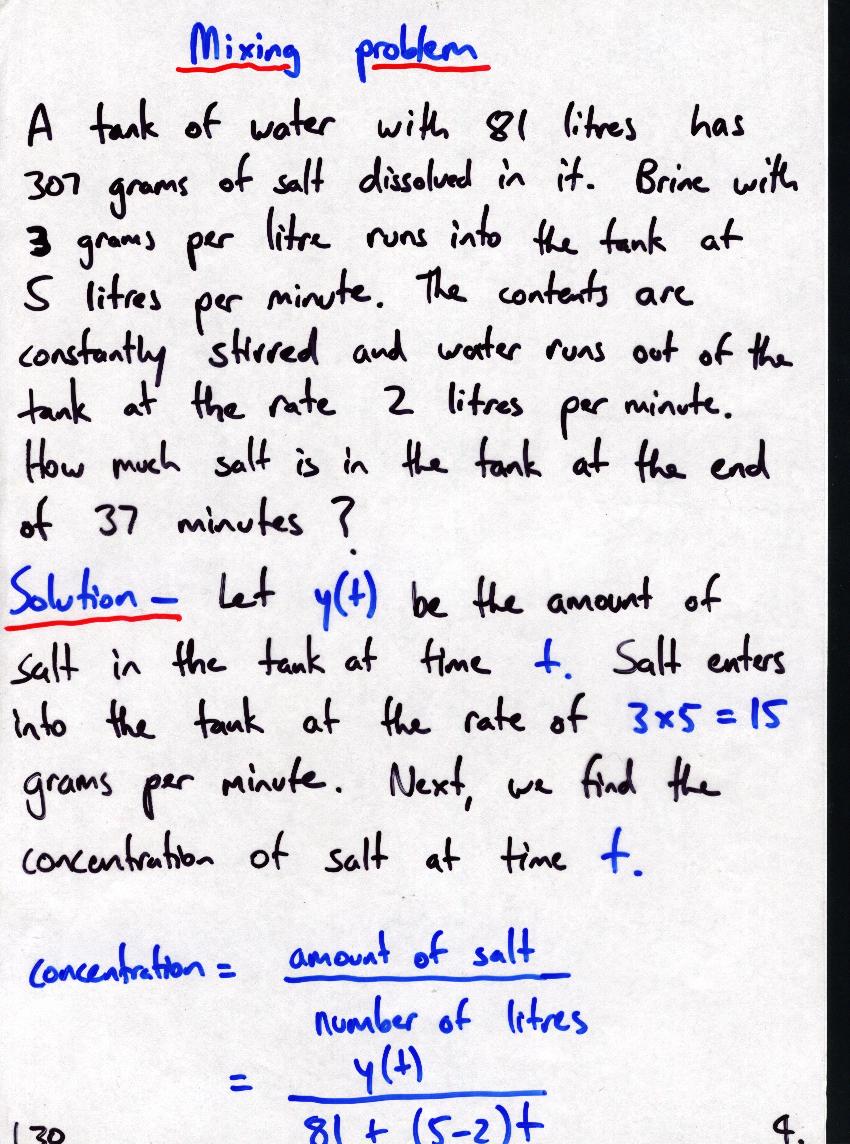 Mixing problem
A tank of water with 81 litres has
307 grams of salt dissolved in it. Brine with
3 grams per litre runs into the tank at
5 litres per minute. The contents are
constantly stirred and water runs out of the
tank at the rate 2 litres per minute.
How much salt is in the tank at the end
of 37 minutes ?
Solution - Let y(t) be the amount of
salt in the tank at time t. Salt enters
into the tank at the rate of 3×5 = 15
grams per minute. Next, we find the
concentration of salt at time t.
concentration = amount of salt
number of litres
= y(t)
81 + (5-2)t